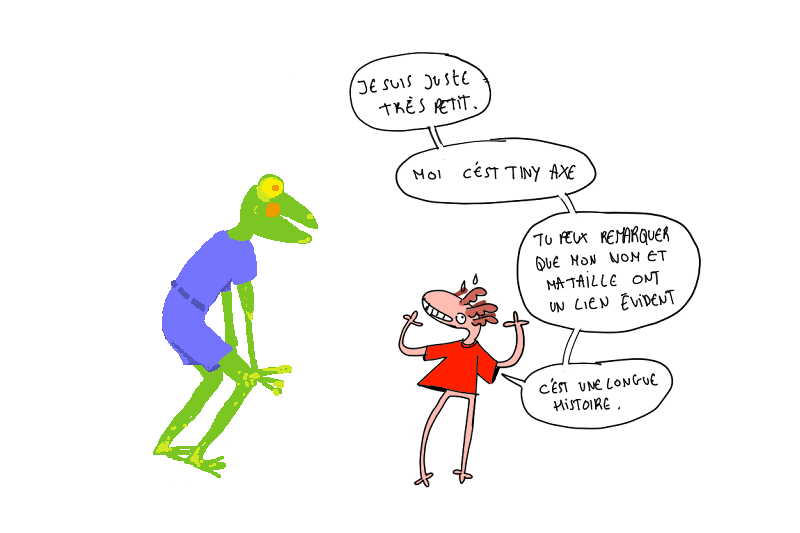 JE SUIS JUSTE
TRÈS PETIT.
MOI C'EST TINY AXE
TU PEUX REMARQUER
QUE MON NOM ET
MA TAILLE ONT
UN LIEN ÉVIDENT
C'EST UNE LONGUE
HISTOIRE.